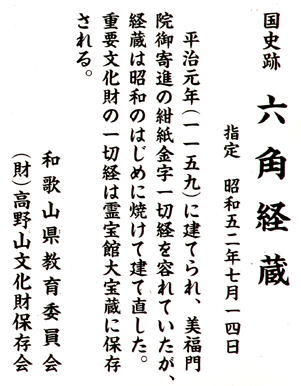 国史跡　六角経蔵
指定　昭和五二年七月一四日
平治元年(一一五九)に建てられ、美福門
院御寄進の紺紙金字一切経を容れていたが、
経蔵は昭和のはじめに焼けて建て直した。
重要文化財の一切経は霊宝館大宝蔵に保存
される。
和歌山県教育委員会
(財)高野山文化財保存会